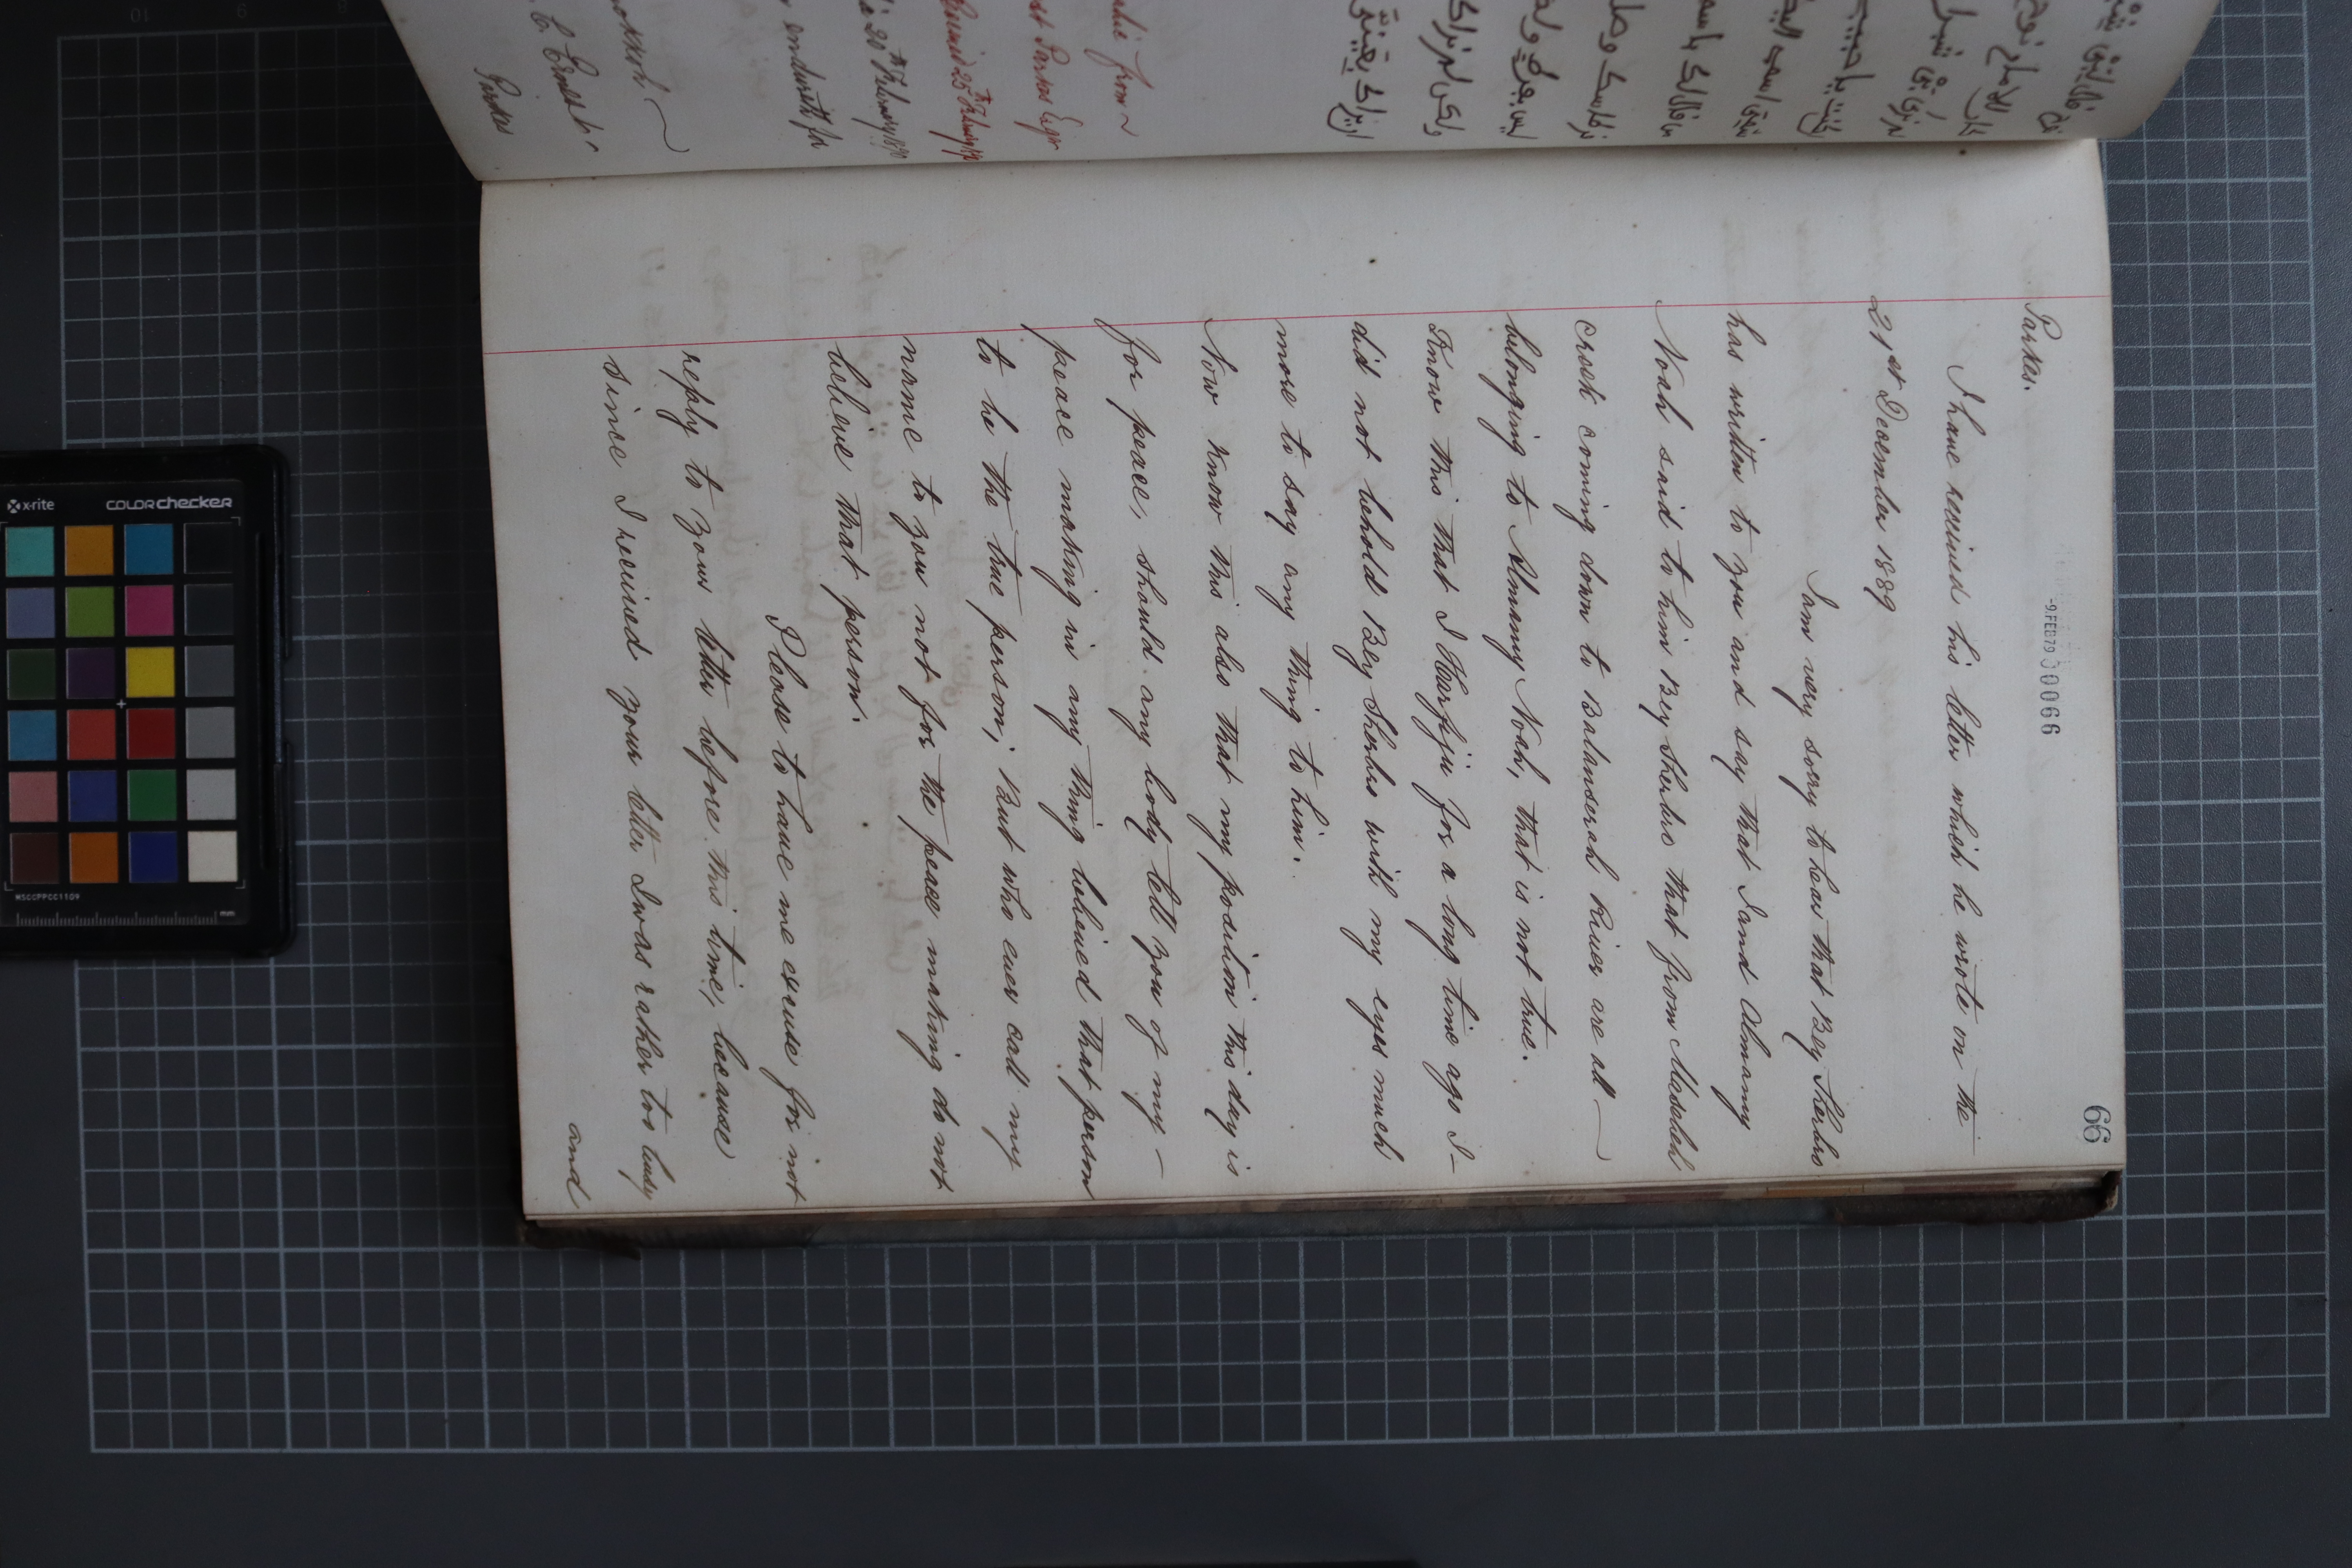 66
-9.FEB79 00066
Parkes.
I have received his letter which he wrote on the
21st December 1889
I am very sorry to hear that Bey Sherbro
has written to you and say that I and Almamy
Noah said to him Bey Sherbro that from Masaleh
creek coming down to Balanserah River are all
belonging to Almamy Noah, that is not true.
Know this that I Harfiju for a long time ago I
did not behold Bey Sherbro with my eyes much
more to say any thing to him.
Now know this also that my position this day is
for peace, should any body tell you of my
peace making in any thing believed that person
to be the true person; But who ever call my
name to you not for the peace making do not
believe that person.
Please to have me excuse for not
reply to your letter before this time, because
since I received your letter I was rather too busy
and
lahi from
st Parkes Esqr
Received 25th February/90
20th February 1890
endureth for
C. Ernest
Parkes
x-rite
colorchecker
MSCCPPCC1109
mm
10
9
8